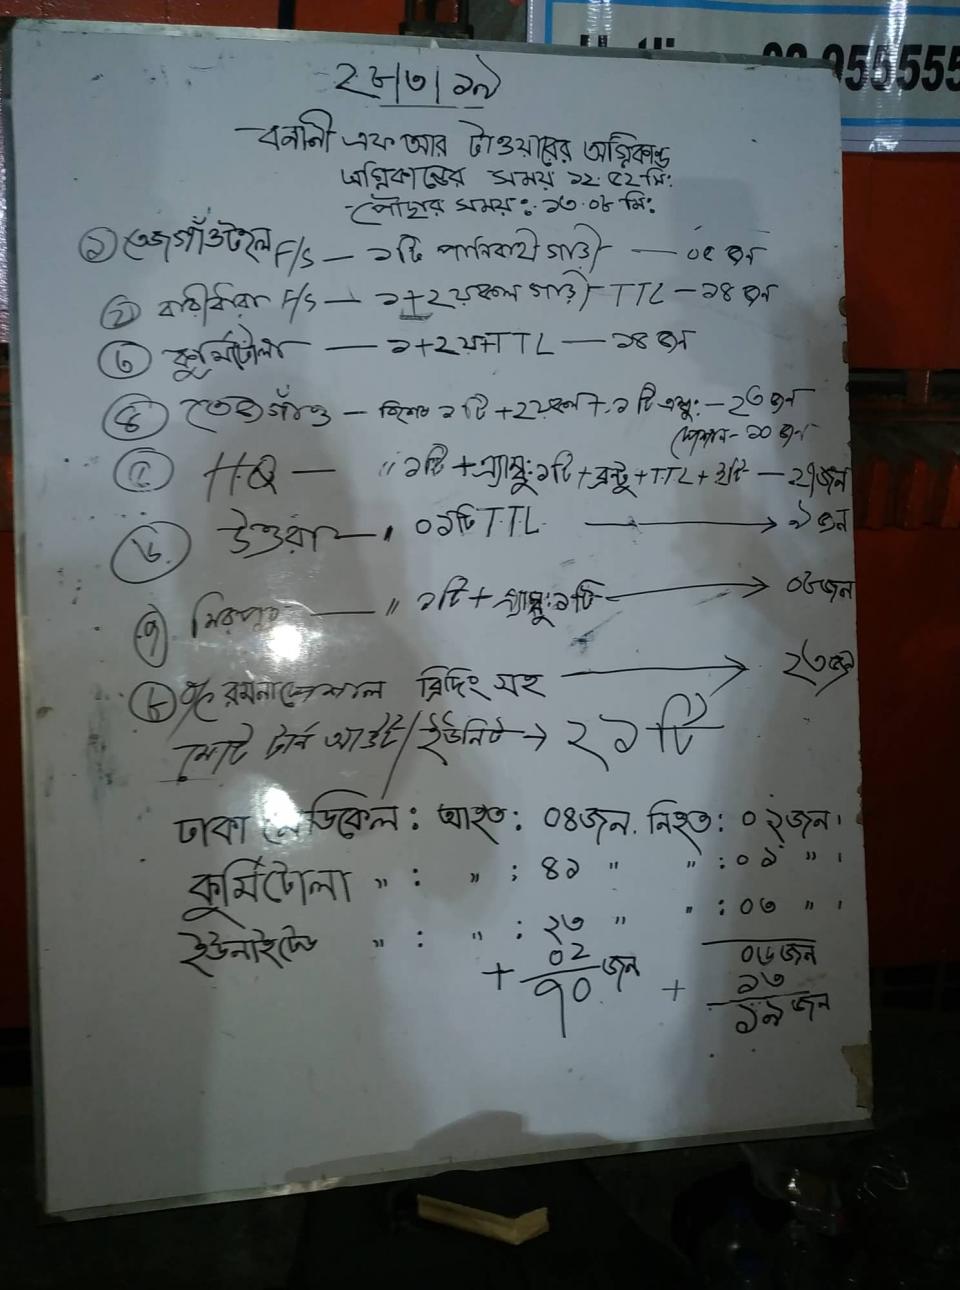 955555
২৮/৩/১৯
বনানী এফ আর টাওয়ারের অগ্নিকান্ড
অগ্নিকান্ডের সময় ১২.৫২ মি:
পৌছার সময়: ১৩.০৮ মি:
১ তেজগাঁওটহল F/S — ১টি পানিবাহী গাড়ী — ০৫ জন
২ বারীধারা F/S — ১+২য়কল গাড়ী- TTL - ১৪ জন
৩ কুর্মিটোলা — ১+২য়+TTL — ১৪ জন
৪ তেজগাঁও — ১টি +২য়কল+ ১টি এম্বু: - ২৩ জন
স্পেশাল- ১০ জন
৫ HQ — " ১টি + এ্যাম্বু: ১টি + ব্রন্টু + TTL + — ২৭জন
৬ উত্তরা — " ০১টি TTL → ৯ জন
৭ মিরপুর — " ১টি + এ্যাম্বু: ১টি → ০৮জন
৮ স্পেশাল ব্রিদিং সহ → ২৩জন
মোট টার্ন আউট/ইউনিট → ২১ টি
ঢাকা মেডিকেল: আহত: ০৪জন. নিহত: ০২জন।
কুর্মিটোলা " : " : ৪১ " " : ০১ " ।
ইউনাইটেড " : " : ২৩ " " : ০৩ " ।
+ ০২ ০৬জন
৭০ জন + ১৩
১৯ জন